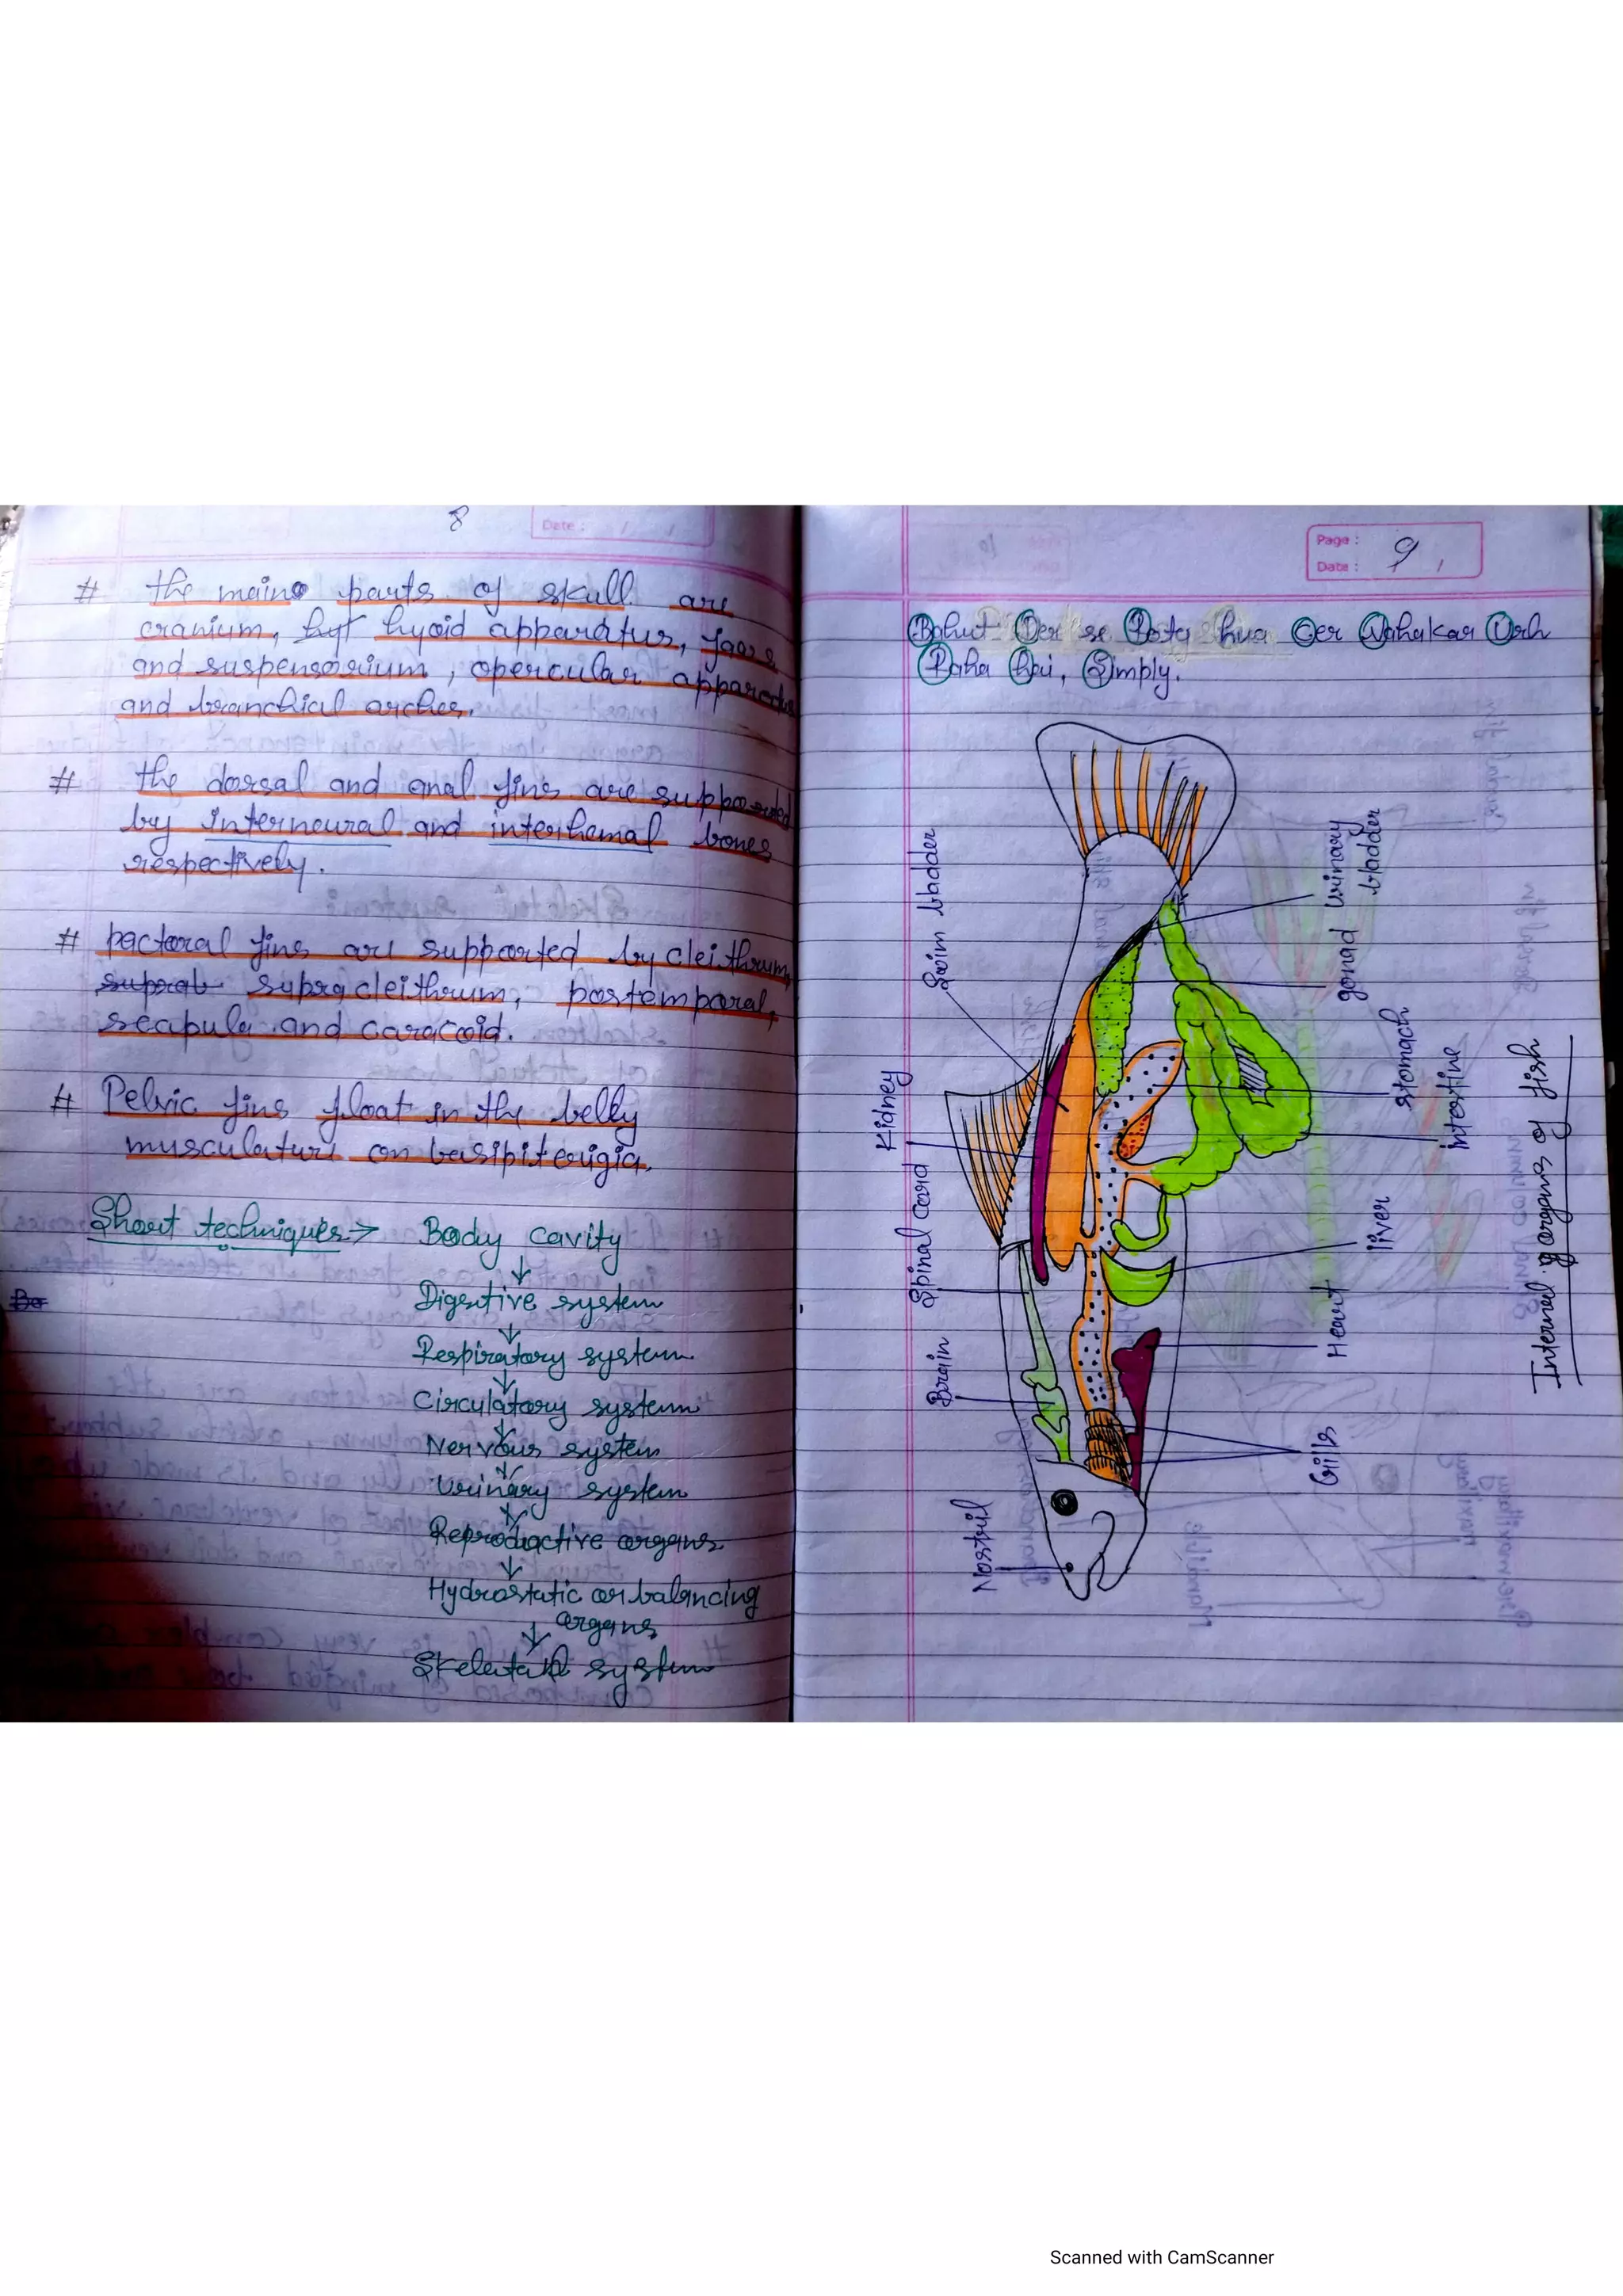 8
Date :
# the main parts of skull are
cranium, hyt hyoid apparatus, jaws
and suspensorium, opercular apparatus
and branchial arches.
# the dorsal and anal fins are supported
by interneural and interhemal bones
respectively.
# pectoral fins are supported by cleithrum,
suprab supracleithrum, postemporal,
scapula and caracoid.
# Pelvic fins float in the belly
musculature on basipiterigia.
Short techniques → Body cavity
↓
Bo
Digestive system
↓
Respiratory system
↓
Circulatory system
↓
Nervous system
↓
Urinary system
↓
Reproductive organs
↓
Hydrostatic or balancing
organs
↓
Skeletal system
Page : 9
Date :
Bahut Der se Rota hua Cer Nahakar Urh
Raha hai, Simply.
Swim bladder
Kidney
Spinal Cord
Brain
Nostril
urinary
bladder
gonad
stomach
intestine
liver
Heart
Gills
Internal organs of fish
Scanned with CamScanner